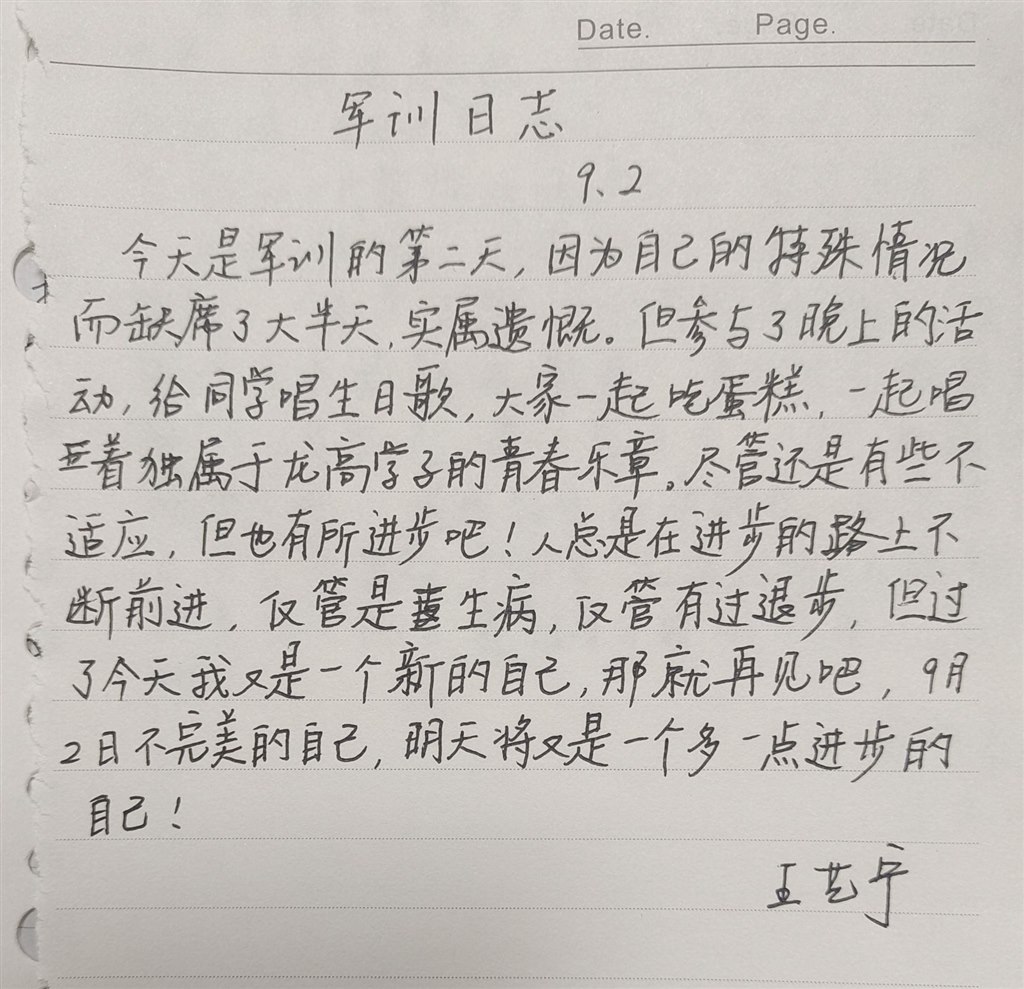 Date. Page.
军训日志
9、2
今天是军训的第二天，因为自己的特殊情况
而缺席了大半天，实属遗慨。但参与了晚上的活
动，给同学唱生日歌，大家一起吃蛋糕，一起唱
着独属于龙高学子的青春乐章。尽管还是有些不
适应，但也有所进步吧！人总是在进步的路上不
断前进，仅管是生病，仅管有过退步，但过
了今天我又是一个新的自己，那就再见吧，9月
2日不完美的自己，明天将又是一个多一点进步的
自己！
王艺宁